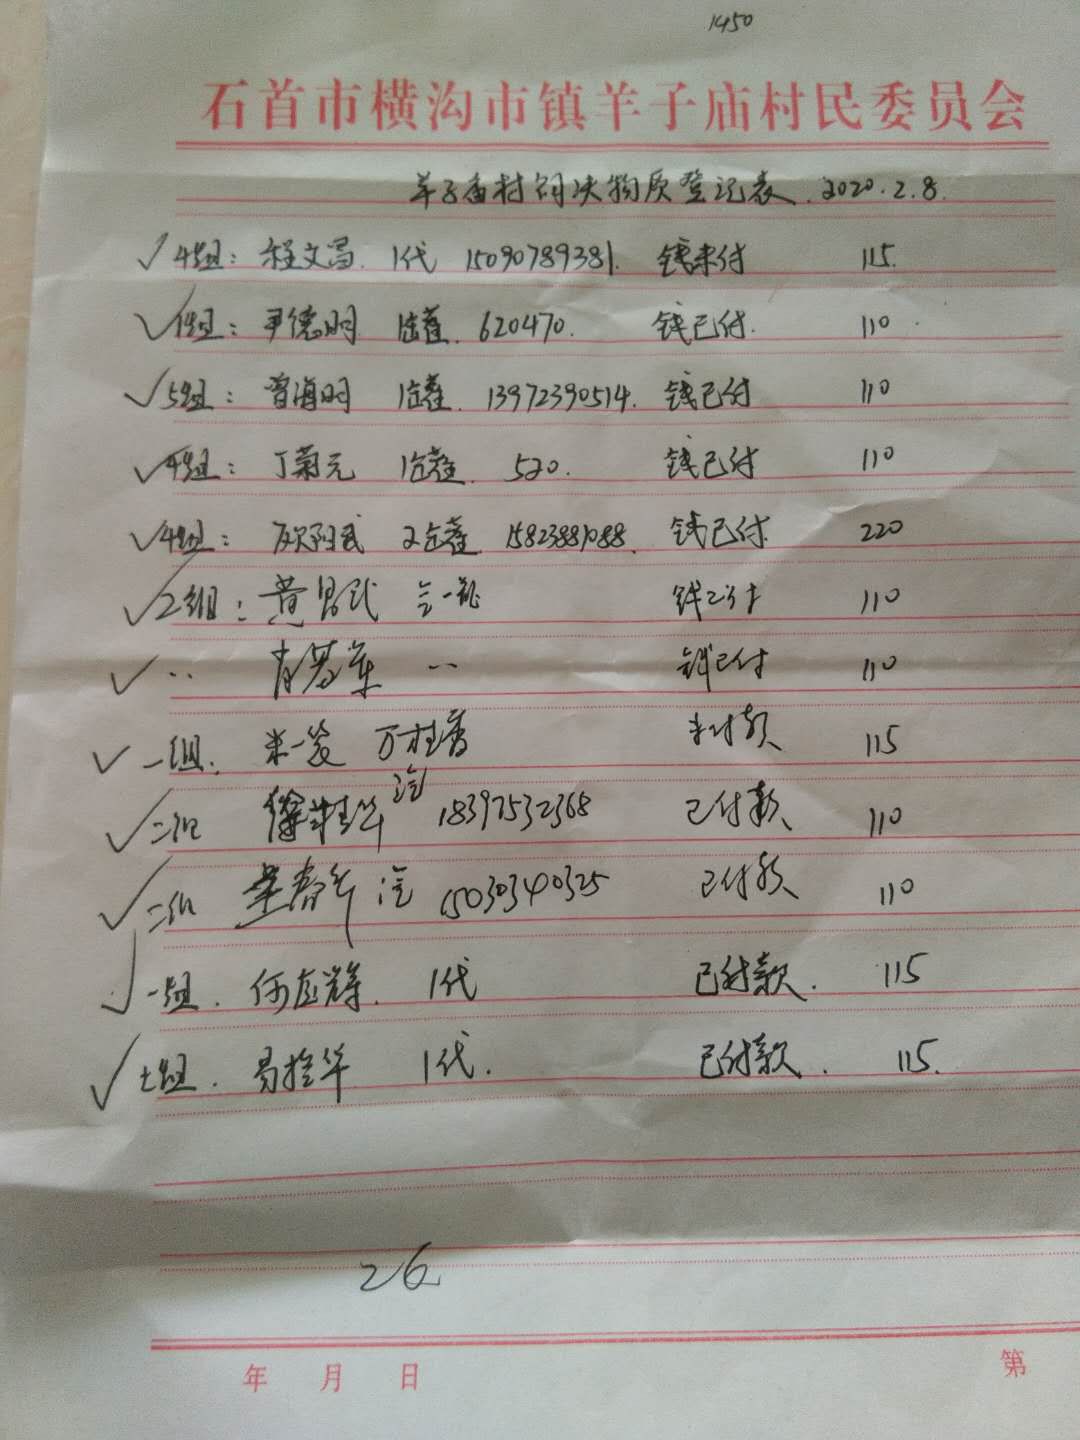 1450
石首市横沟市镇羊子庙村民委员会
羊子庙村 物质登记表. 2020.2.8.
√ 4组: 程文昌. 1代 15090789381. 钱未付 115.
√ 1组: 尹德明 1 620470. 钱已付. 110
√ 5组: 曾海明 1 13972390514. 钱已付 110
√ 4组: 丁菊元 1 520. 钱已付 110
√ 4组: 欧阳武 2 钱已付. 220
√ 2组: 黄 武 一瓶 钱已付 110
√ 〃 肖 军 〃 钱已付 110
√ 一组: 米一发 万桂香 未付款 115
√ 二组 徐 华 18397532368 已付款 110
√ 二组 春华 15030340325 已付款 110
√ 一组. 何应辉. 1代 已付款. 115
√ 七组. 易拴华 1代. 已付款. 115.
26
年 月 日 第